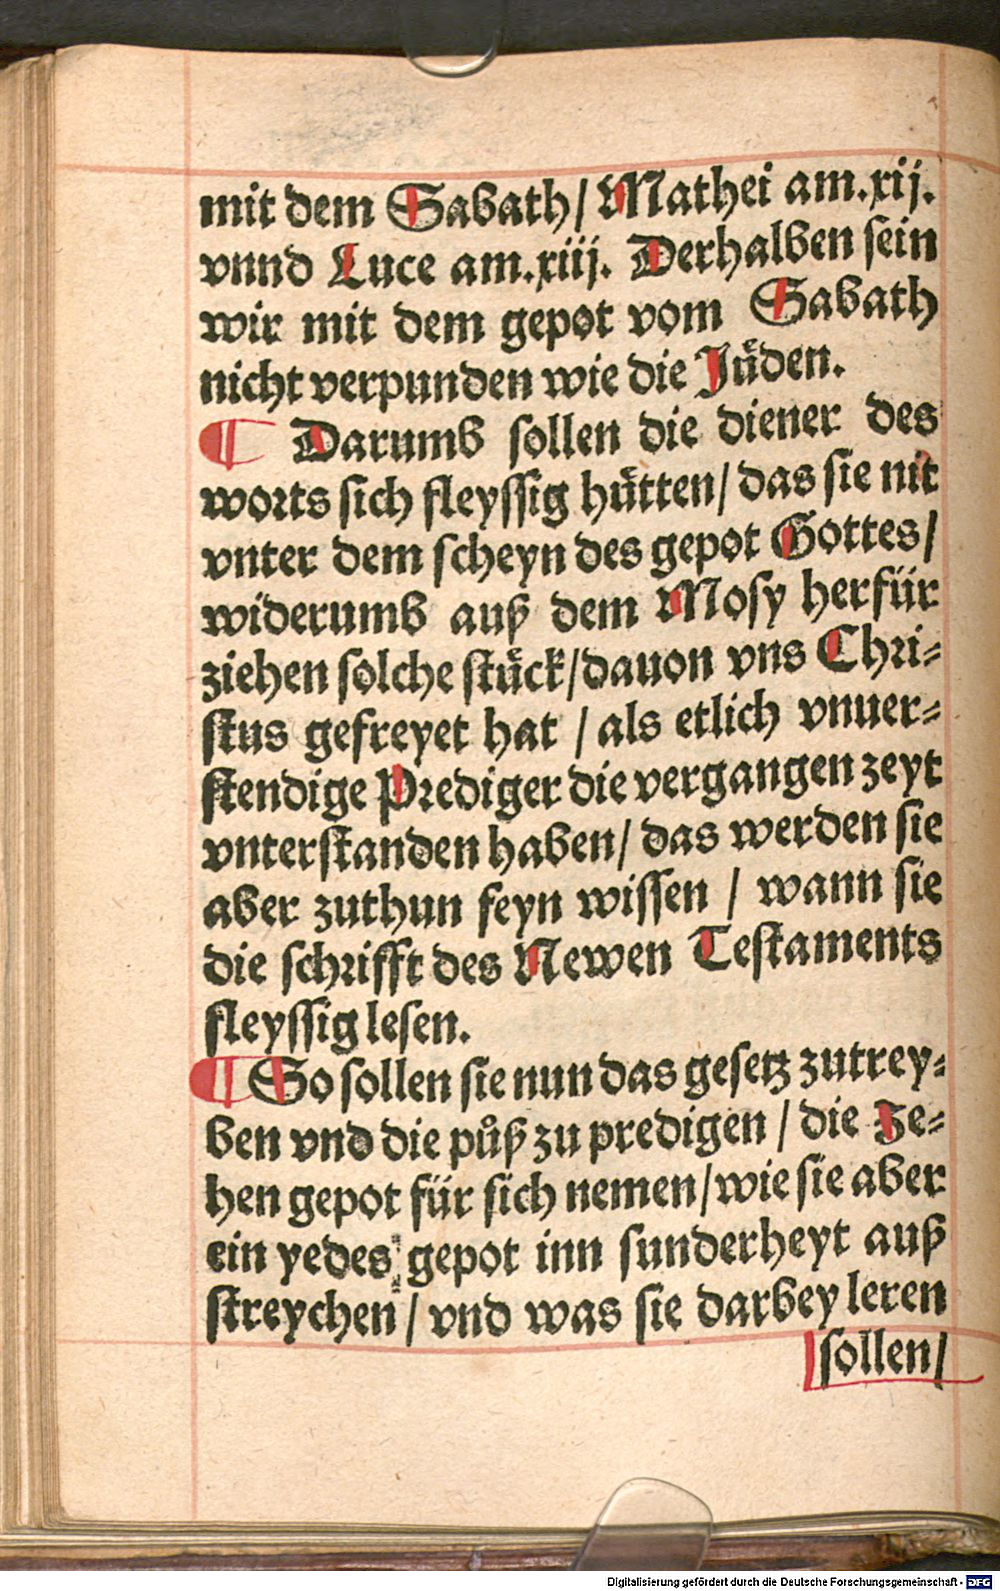 mit dem Sabath/ Mathei am.xij.
vnnd Luce am.xiij. Derhalben sein
wir mit dem gepot vom Sabath
nicht verpunden wie die Jůden.
¶ Darumb sollen die diener des
worts sich fleyssig hůtten/ das sie nit
vnter dem scheyn des gepot Gottes/
widerumb auß dem Mosy herfür
ziehen solche stůck/dauon vns Chri⸗
stus gefreyet hat / als etlich vnuer⸗
stendige Prediger die vergangen zeyt
vnterstanden haben/ das werden sie
aber zuthun feyn wissen / wann sie
die schrifft des Newen Testaments
fleyssig lesen.
¶ So sollen sie nun das gesetz zutrey⸗
ben vnd die půß zu predigen / die Ze⸗
hen gepot für sich nemen/wie sie aber
ein yedes gepot inn sunderheyt auß
streychen / vnd was sie darbey leren
sollen/
Digitalisierung gefördert durch die Deutsche Forschungsgemeinschaft - DFG